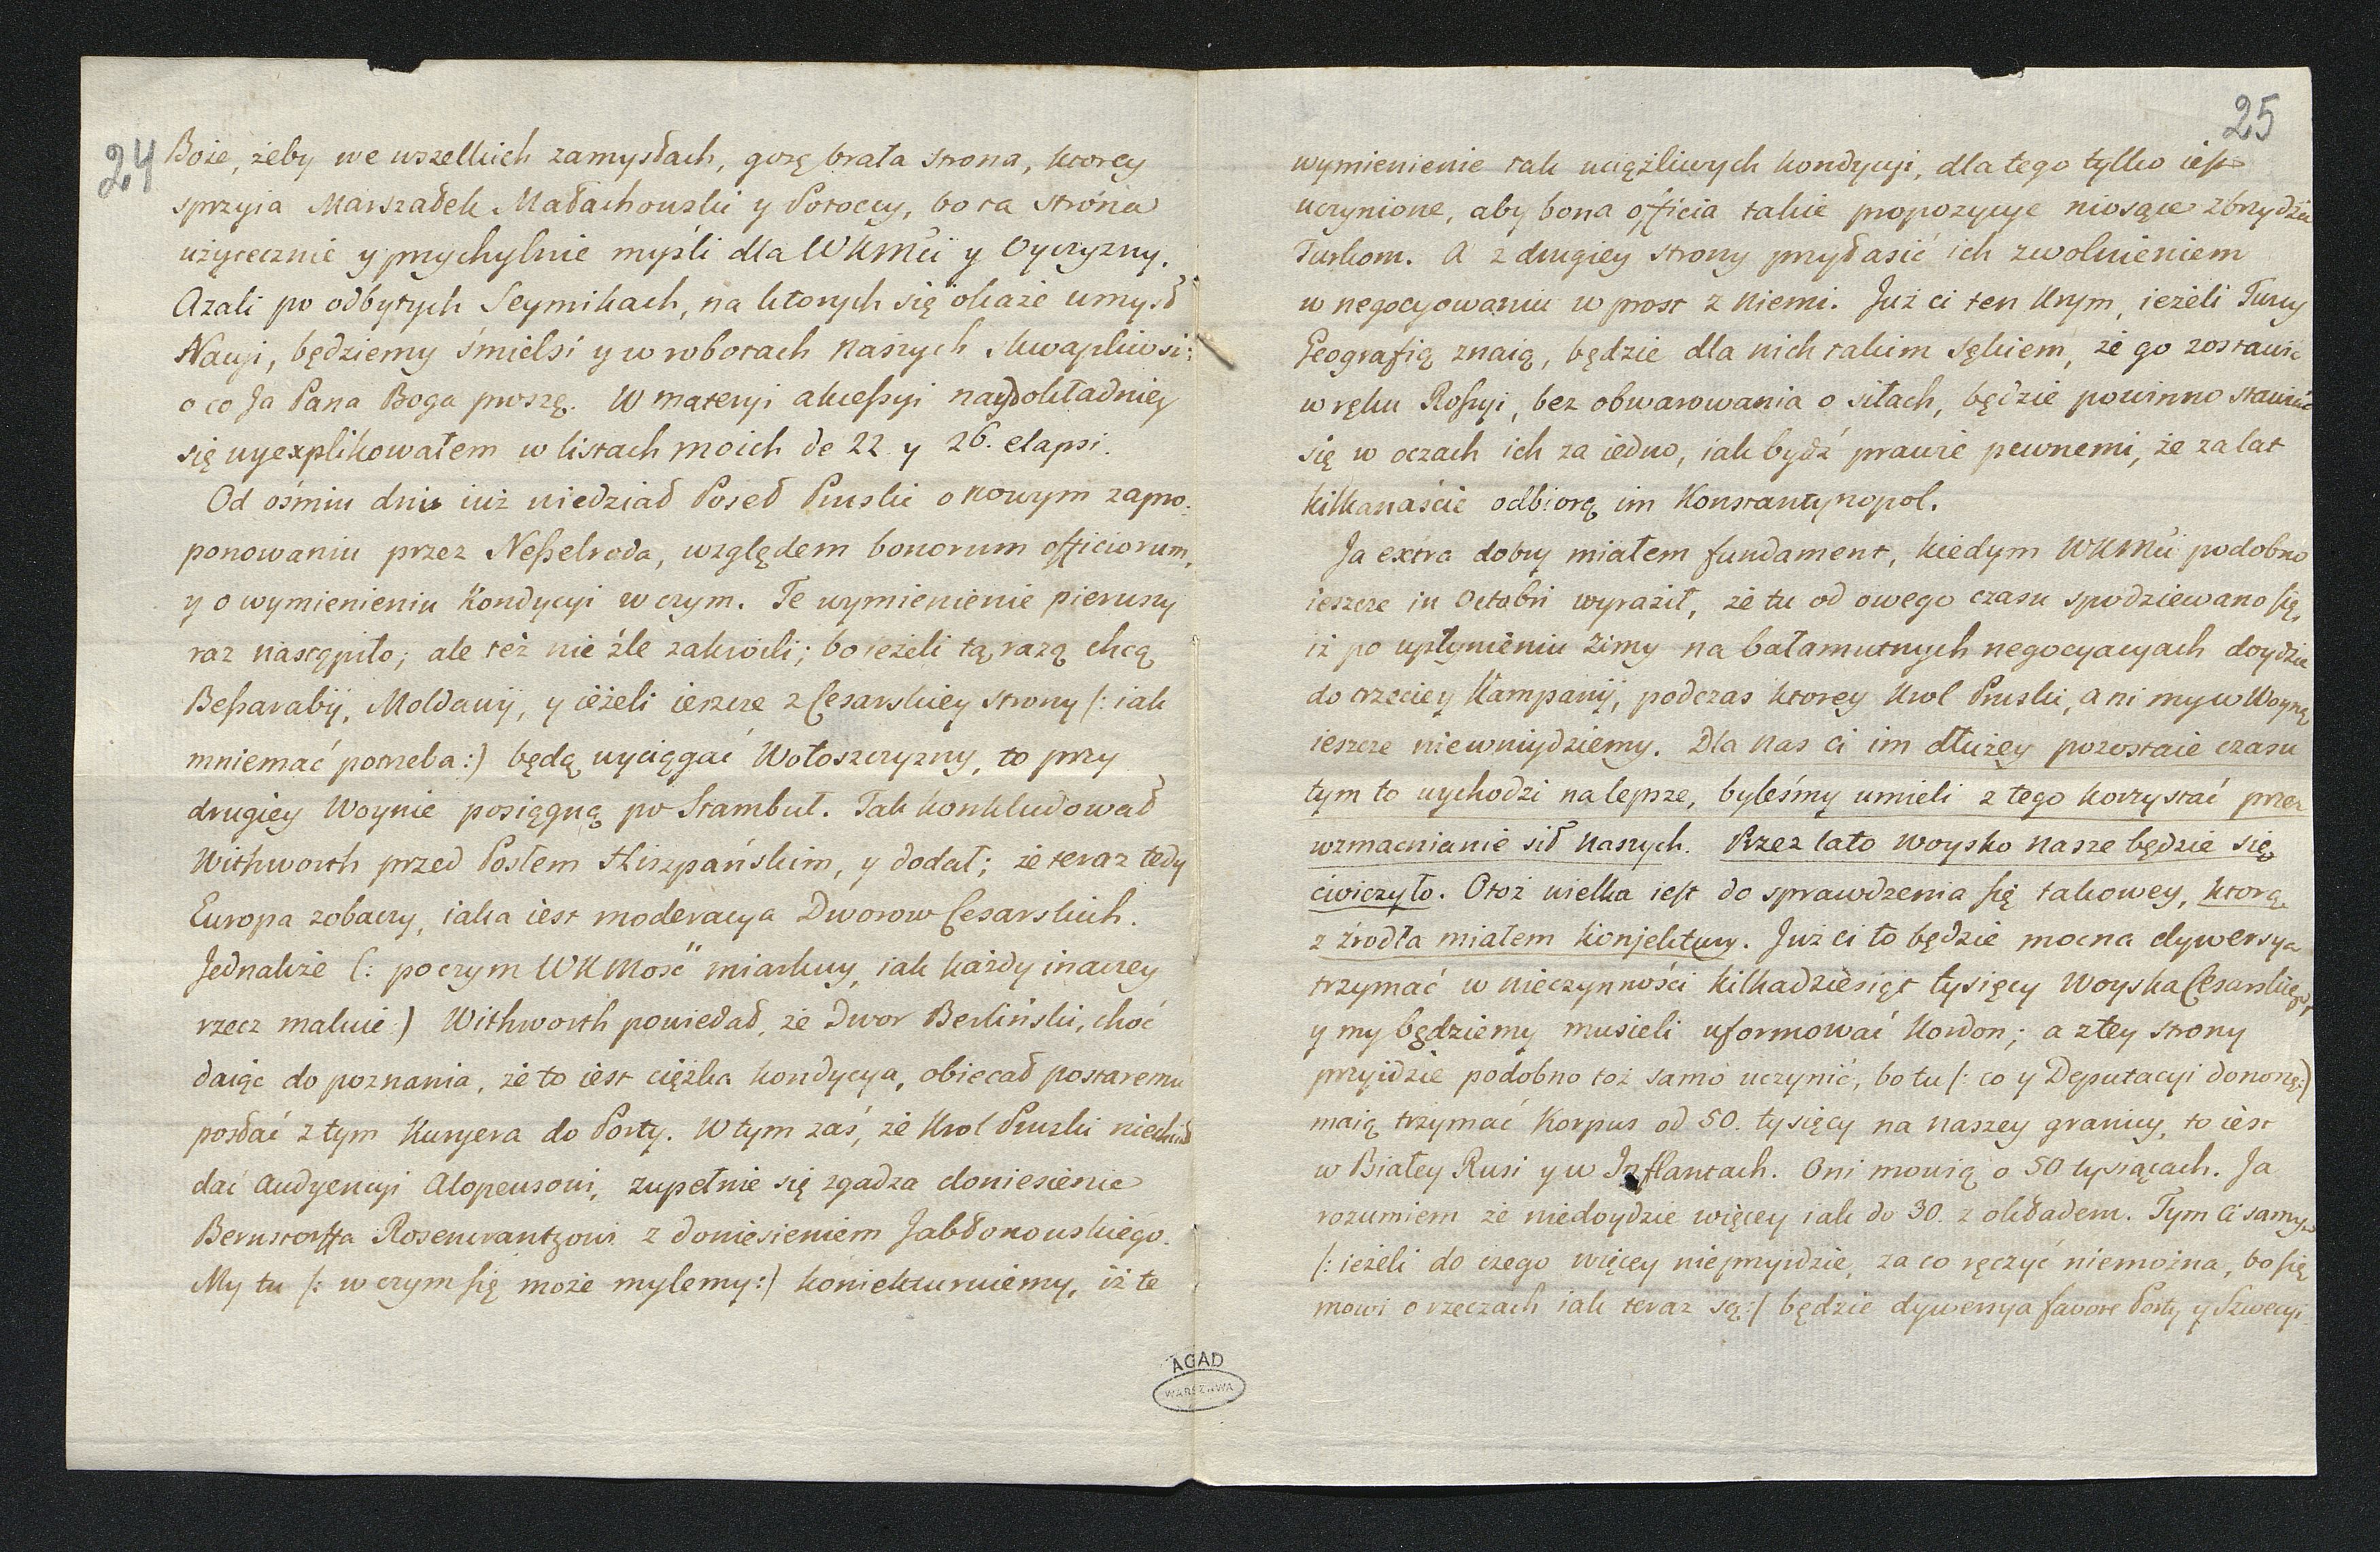 24
Boże, żeby we wszelkich zamysłach, gorę brała strona, ktorey
sprzyia Marszałek Małachowski y Potoccy, bo ta strona
użytecznie y przychylnie myśli dla WKMci y Oyczyzny.
Azali po odbytych Seymikach, na ktorych się okaże umysł
Nacyi, będziemy śmielsi y w robotach naszych skwapliwsi;
o co Ja Pana Boga proszę. W materyi akcessyi naydokładniey
się wyexplikowałem w listach moich de 22 y 26. elapsi.
Od ośmiu dni iuż wiedział Poseł Pruski o nowym zapro-
ponowaniu przez Nesselroda, względem bonorum officiorum,
y o wymienieniu Kondycyi w czym. Te wymienienie pierwszy
raz nastąpiło; ale też nie źle zakroili; bo ieżeli tą razą chcą
Bessarabij, Moldawij, y ieżeli ieszcze z Cesarskiey strony /: iak
mniemać potrzeba:) będą wyciągać Wołoszczyzny, to przy
drugiey Woynie posięgną po Stambuł. Tak konkludował
Withworth przed Posłem Hiszpańskim, y dodał; że teraz tedy
Europa zobaczy, iaka iest moderacya Dworow Cesarskich.
Jednakże (: po czym WKMość miarkuy, iak każdy inaczey
rzecz maluie:) Withworth powiedał, że Dwor Berliński, choć
daiąc do poznania, że to iest ciężka kondycya, obiecał postaremu
posłać z tym Kuryera do Porty. W tym zaś, że Krol Pruski niechciał
dać Audyencyi Alopeusowi, zupełnie się zgadza doniesienie
Bernstorffa Rosencrantzowi z doniesieniem Jabłonowskiego.
My tu /: w czym się może mylemy:) koniekturuiemy, iż te
AGAD
WARSZAWA
25
wymienienie tak uciążliwych kondycyi, dla tego tylko iest
uczynione, aby bona officia takie propozycye niosące zbrzydzić
Turkom. A z drugiey strony przyłasić ich zwolnieniem
w negocyowaniu w prost z niemi. Już ci ten Krym, ieżeli Turcy
Geografią znaią, będzie dla nich takim sękiem, że go zostawić
w ręku Rossyi, bez obwarowania o siłach, będzie powinno stawić
się w oczach ich za iedno, iak bydź prawie pewnemi, że za lat
kilkanaście odbiorą im Konstantynopol.
Ja extra dobry miałem fundament, kiedym WKMci podobno
ieszcze in Octobri wyraził, że tu od owego czasu spodziewano się,
iż po upłynieniu zimy na bałamutnych negocyacyach doydzie
do trzeciey Kampanij, podczas ktorey Krol Pruski, ani my w Woynę
ieszcze niewniydziemy. Dla nas ci im dłużey pozostaie czasu
tym to wychodzi na lepsze, byleśmy umieli z tego korzystać przez
wzmacnianie sił naszych. Przez lato woysko nasze będzie się
ćwiczyło. Otoż wielka iest do sprawdzenia się takowey, ktorą
z źrodła miałem konjektury. Już ci to będzie mocna dywersya
trzymać w nieczynności kilkadziesiąt tysięcy Woyska Cesarskiego,
y my będziemy musieli uformować Kordon; a z tey strony
przyidzie podobno toż samo uczynić, bo tu /: co y Deputacyi donoszę:)
maią trzymać Korpus od 50. tysięcy na naszey granicy, to iest
w Białey Rusi y w Inflantach. Oni mowią o 50 tysiącach. Ja
rozumiem że niedoydzie więcey iak do 30. z okładem. Tym ci samym
/: ieżeli do czego więcey nieprzyidzie, za co ręczyć niemożna, bo się
mowi o rzeczach iak teraz są:/ będzie dywersya favore Porty y Szwecyi